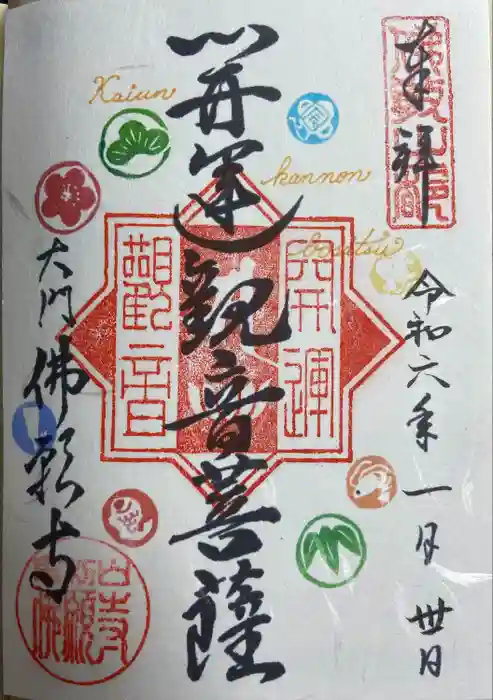 奉拝
令和六年一月卅日
Kaiun
開運観音菩薩
kannon
bosatsu
開運
觀音
大門
佛願寺